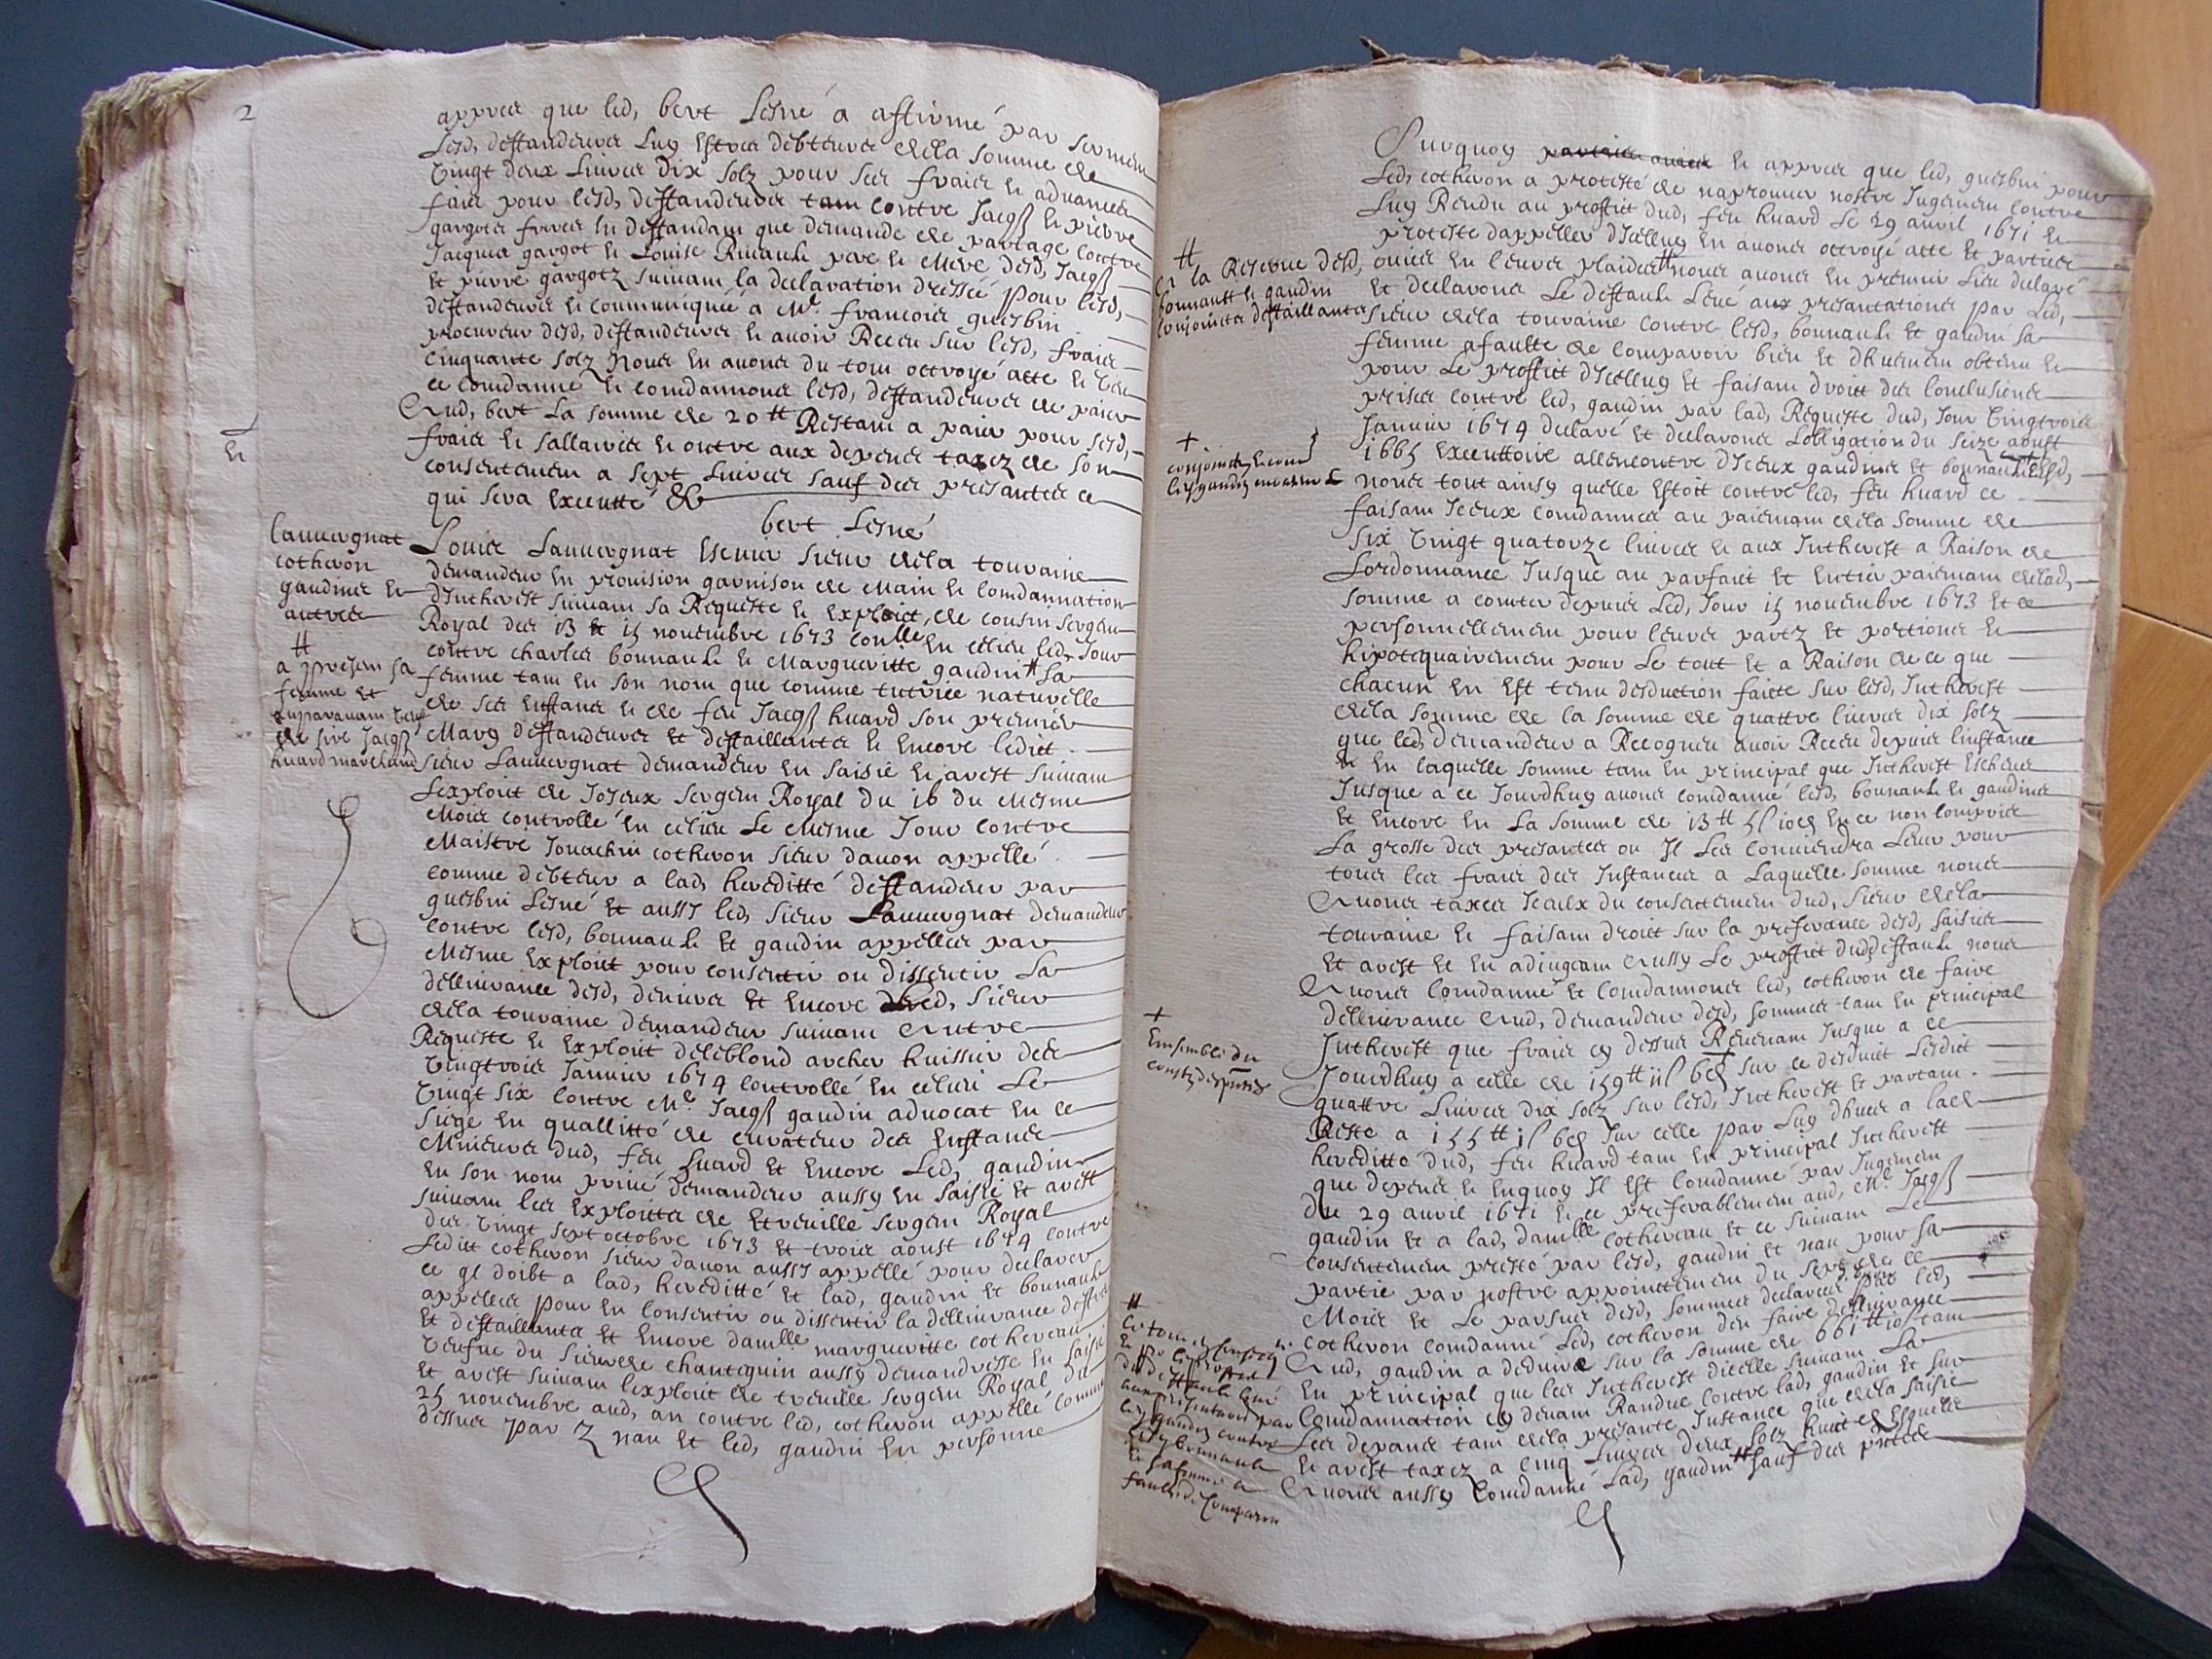 2
appres que led, bert Lesné a affirmé par sermen
Lesd, deffandeurs Luy Estres debteurs de la somme de
vingt deux Livres dix solz pour ses fraies et advances
faict pour lesd, deffandeurs contre Jacqs et pierre
gargotz freres en deffandam que demande de partage contre
Jacques gargot et Louise Rucault pere et Mere desd, Jacqs
et pierre gargotz suivam la declaration dressée pour lesd,
deffandeurs et communiquée a Me. francois guesbin
procureur desd, deffandeurs et avoir Receu sur lesd, fraies
Cinquante solz Nous en avons du tout octroyé atte et
ce comdamné et comdamnons lesd, deffandeurs de paier
Aud, bert La somme de 20 tt Restant a paier pour sesd,
fraies et sallaires et outre aux depens taxez de son
consentemen a sept Livres sauf des presantes ce
qui sera Executté &c
bert Lesné
et
Lauvergnat
cotheron
gaudines et
autres
Louis Lauvergnat Escuier sieur de la touraine
demandeur en provision garnison de Main et comdamnation
d'Intherest suivam sa Requeste et Exploict, de cousin sergen
Royal des 13 et 15 novembre 1673 conlle En celieu led, Jour
contre charles bonnault et Margueritte gaudin # sa
femme tam en son nom que comme tutrice naturelle
de ses Enffans et de feu Jacqs huard son premier
Mary deffandeurs et deffaillantes et Encore ledict
sieur Lauvergnat demandeur en saisie et arest suivam
L'exploict de Joyeux sergen Royal du 16 du Mesme
Mois controllé En celieu Le Mesme Jour contre
Maistre Jouachin cotheron sieur davon appellé
comme debteur a lad, hereditté deffandeur par
guesbin Lesné et aussy led, sieur Lauvergnat demandeur
contre lesd, bonnault et gaudin appelles par
Mesme Exploict pour consentir ou dissentir La
dellivrance desd, deniers et Encore led, sieur
de la touraine demandeur suivam Autre
Requeste et Exploict deleblond archer huissier des
vingtrois Janvier 1674 controllé En celieu Le
vingt six contre Me Jacqs gaudin advocat En ce
siege en quallitté de curateur des Enffans
Mineurs dud, feu huard et Encore Led, gaudin
en son nom privé demandeur aussy En saisie et arest
suivam les Exploicts de Etreuille sergen Royal
des vingt sept octobre 1673 et trois aoust 1674 contre
Ledict cotheron sieur davon aussy appellé pour declarer
ce ql doibt a lad, hereditté et lad, gaudin et bonnault
appelles pour en consentir ou dissentir la dellivrance
et deffaillants et Encore damlle margueritte cothereau
veufue du sieur de chantequin aussy demandresse en saisie
et arest suivam l'exploict de treuille sergen Royal du
25 novembre aud, an contre led, cotheron appellé comme
dessus par nau et led, gaudin En personne
#
a presen sa
femme et
auparavam
de sire Jacqs
huard marchand
Surquoy et appres que led, guesbin pour
Led, cotheron a protesté de naprouver nostre Jugemen contre
Luy Rendu au proffict dud, feu huard Le 29 avril 1671 et
proteste dappeller dicelluy En avons octroyé atte et parties
ouies en leurs plaides # nous avons En premier Lieu declaré
et declarons Le deffault Levé aux presantations par Led,
sieur de la touraine contre lesd, bonnault et gaudin sa
femme a faulte de comparoir bien et dhuemen obtenu et
pour Le proffict dicelluy et faisam droict des conclusions
prises contre led, gaudin par lad, Requeste dud, Jour vingtrois
Janvier 1674 declaré et declarons Lobligation du seize aoust
1665 Executtoire allencontre diceux gaudines et bonnault
nous tout ainsy quelle Estoit contre led, feu huard ce
faisam Iceux comdamnes au paiemam de la somme de
six vingt quatorze livres et aux Intherest a Raison de
Lordonnance Jusque au parfaict et Entier paiemam de lad,
somme a conter depuis Led, Jour 15 novembre 1673 et ce
personnellemen pour leurs partz et portions et
hipotequairemen pour Le tout et a Raison de ce que
chacun en Est tenu desduction faicte sur lesd, Intherest
de la somme de la somme de quattre livres dix solz
que led, demandeur a Recogneu avoir Receu depuis linstance
en laquelle somme tam En principal que Intherest Escheus
Jusque a ce Jourdhuy avons comdamné lesd, bonnault et gaudines
et Encore En La somme de 13 tt En ce non compris
La grosse des presantes ou Il Les conviendra Lever pour
tous les frais des Instances a Laquelle somme nous
Avons taxes Iceulx du consentemen dud, sieur de la
touraine et faisam droict sur la preferance desd, saisies
et arest et En adiugeam Aussy Le proffict dud, deffault nous
Avons comdamné et comdamnons led, cotheron de faire
dellivrance Aud, demandeur desd, sommes tam En principal
Intherest que fraies cy dessus Revenam Jusque a ce
Jourdhuy a celle de 159 tt sur ce desduict Lesdict
quattre Livres dix solz sur lesd, Intherest et partam
Reste a 155 tt sur celle par Luy dheue a lad
hereditté dud, feu huard tam En principal Intherest
que depens et Enquoy Il Est comdamné par Jugemen
du 29 avril 1671 et ce preferablemen aud, Me. Jacqs
gaudin et a lad, damlle cothereau et ce suivam Le
consentemen presté par lesd, gaudin et nau pour sa
partie par nostre appointtemen du sept de ce
Mois et Le parsus desd, sommes declarees par led,
cotheron comdamné Led, cotheron den faire dellivrance
Aud, gaudin a deduire sur la somme de 661 tt tam
En principal que les Intherest dicelle suivam La
Comdamnation cy devam Randue contre lad, gaudin et sur
Les depans tam de la presante Instance que de la saisie
et arest taxez a cinq Livres deux solz huict d Esquelle
Avons aussy Comdamné Lad, gaudin # sauf des
#
En la Presence desd,
bonnault et gaudin
conjoincts deffaillantes
+
Ensemble du
#
deffault Levé
aux presentations par
led gaudin contre
lesd bonnault
et sa femme a
faulte de Comparoir